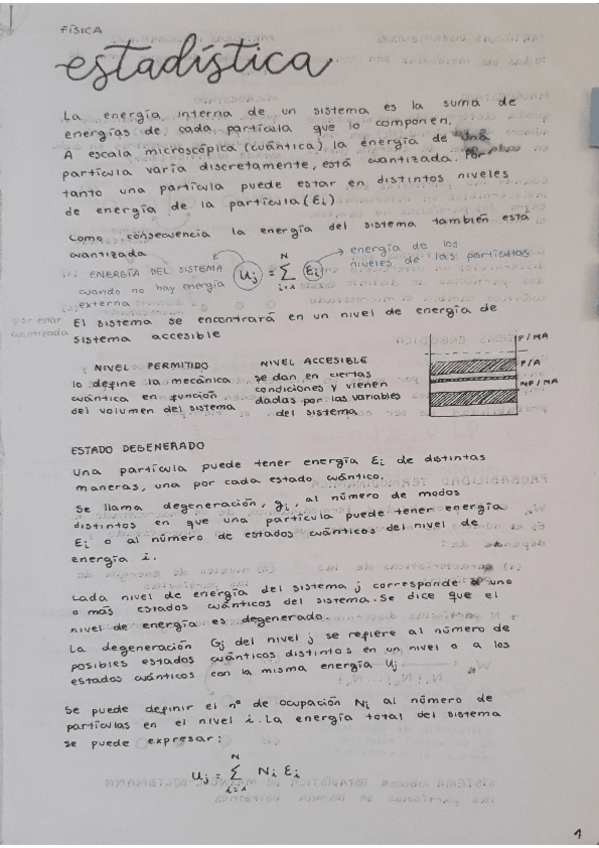 FÍSICA
estadística
La energía interna de un sistema es la suma de
energías de cada partícula que lo componen.
A escala microscópica (cuántica), la energía de una
partícula varía discretamente, está cuantizada. Por
tanto una partícula puede estar en distintos niveles
de energía de la partícula (Ei)
Como consecuencia la energía del sistema también está
cuantizada
ENERGÍA DEL SISTEMA
cuando no hay energía
externa
Uj = Σ Ei
N
i=1
energía de los
niveles de las partículas
por estar
cuantizada
El sistema se encontrará en un nivel de energía de
sistema accesible
NIVEL PERMITIDO
lo define la mecánica
cuántica en función
del volumen del sistema
NIVEL ACCESIBLE
se dan en ciertas
condiciones y vienen
dadas por las variables
del sistema
P/NA
P/A
NP/NA
ESTADO DEGENERADO
Una partícula puede tener energía Ei de distintas
maneras, una por cada estado cuántico.
Se llama degeneración, gi, al número de modos
distintos en que una partícula puede tener energía
Ei o al número de estados cuánticos del nivel de
energía i.
Cada nivel de energía del sistema j corresponde a uno
o más estados cuánticos del sistema. Se dice que el
nivel de energía es degenerado.
La degeneración Gj del nivel j se refiere al número de
posibles estados cuánticos distintos en un nivel o a los
estados cuánticos con la misma energía Uj
Se puede definir el nº de ocupación Ni al número de
partículas en el nivel i. La energía total del sistema
se puede expresar:
N
Uj = Σ Ni Ei
i=1
1